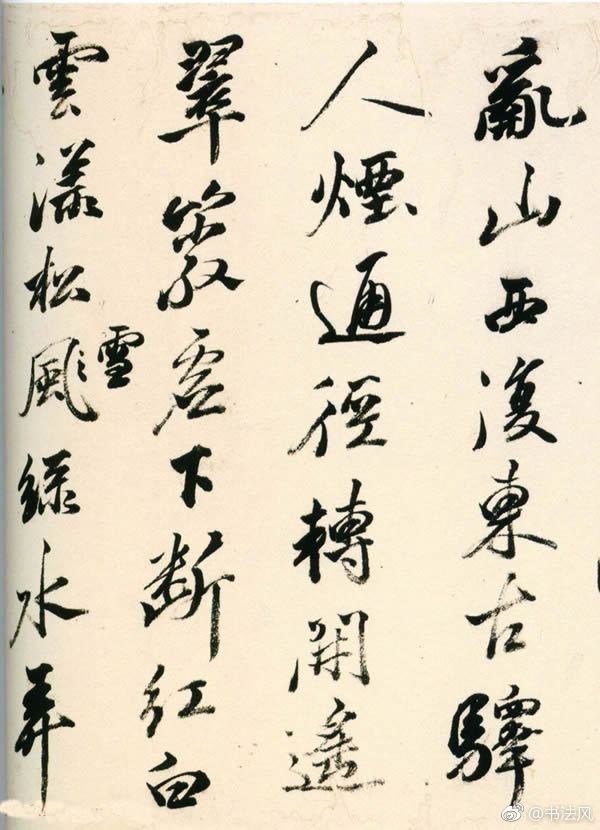 亂山西復東古驛
人煙通徑轉開遙
翠巖虛下斷紅白
雲漾松風綠水弄
雪
@书法风